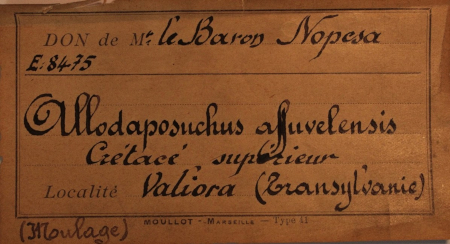 DON de Mr. le Baron Nopesa
E: 8475
Allodaposuchus affuvelensis
Crétacé supérieur
Localité Valiora (Transylvanie)
MOULLOT - MARSEILLE - Type 42
(Moulage)